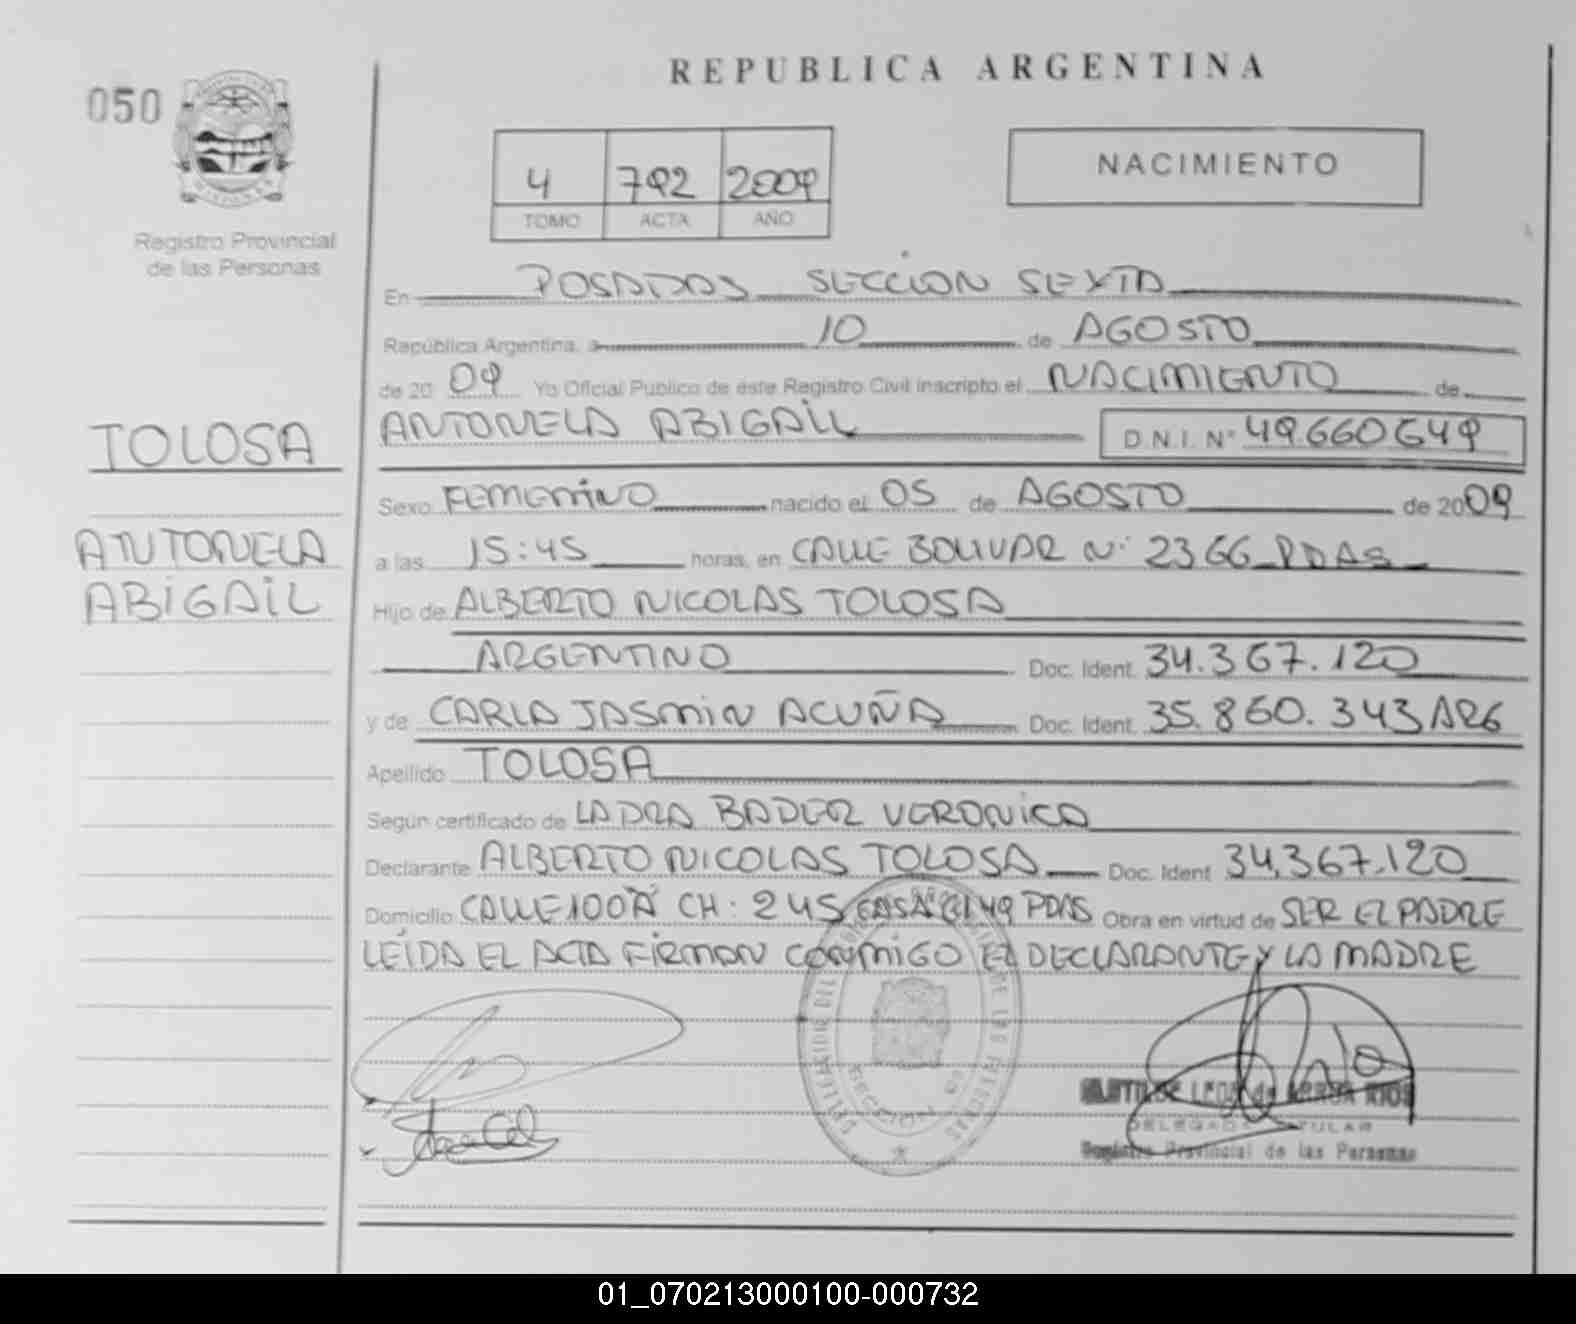 REPUBLICA ARGENTINA
050
NACIMIENTO
4 792 2009
TOMO ACTA AÑO
Registro Provincial
de las Personas
En POSADAS SECCION SEXTA
República Argentina, a 10 de AGOSTO
de 20 09 Yo Oficial Publico de éste Registro Civil inscripto el NACIMIENTO de
TOLOSA
ANTONELA ABIGAIL D.N.I. N° 49.660.649
Sexo FEMENINO nacido el 05 de AGOSTO de 2009
ANTONELA
a las 15:45 horas, en CALLE BOLIVAR N° 2366 PDAS
ABIGAIL
Hijo de ALBERTO NICOLAS TOLOSA
ARGENTINO Doc. Ident. 34.367.120
y de CARLA JASMIN ACUÑA Doc. Ident. 35.860.343 ARG
Apellido TOLOSA
Según certificado de LADRA BADER VERONICA
Declarante ALBERTO NICOLAS TOLOSA Doc. Ident 34,367.120
Domicilio CALLE 100"A" CH: 245 CASA 49 PDAS Obra en virtud de SER EL PADRE
LEÍDA EL ACTA FIRMAN CONMIGO EL DECLARANTE Y LA MADRE
DELEGADA TITULAR
Registro Provincial de las Personas
01_070213000100-000732